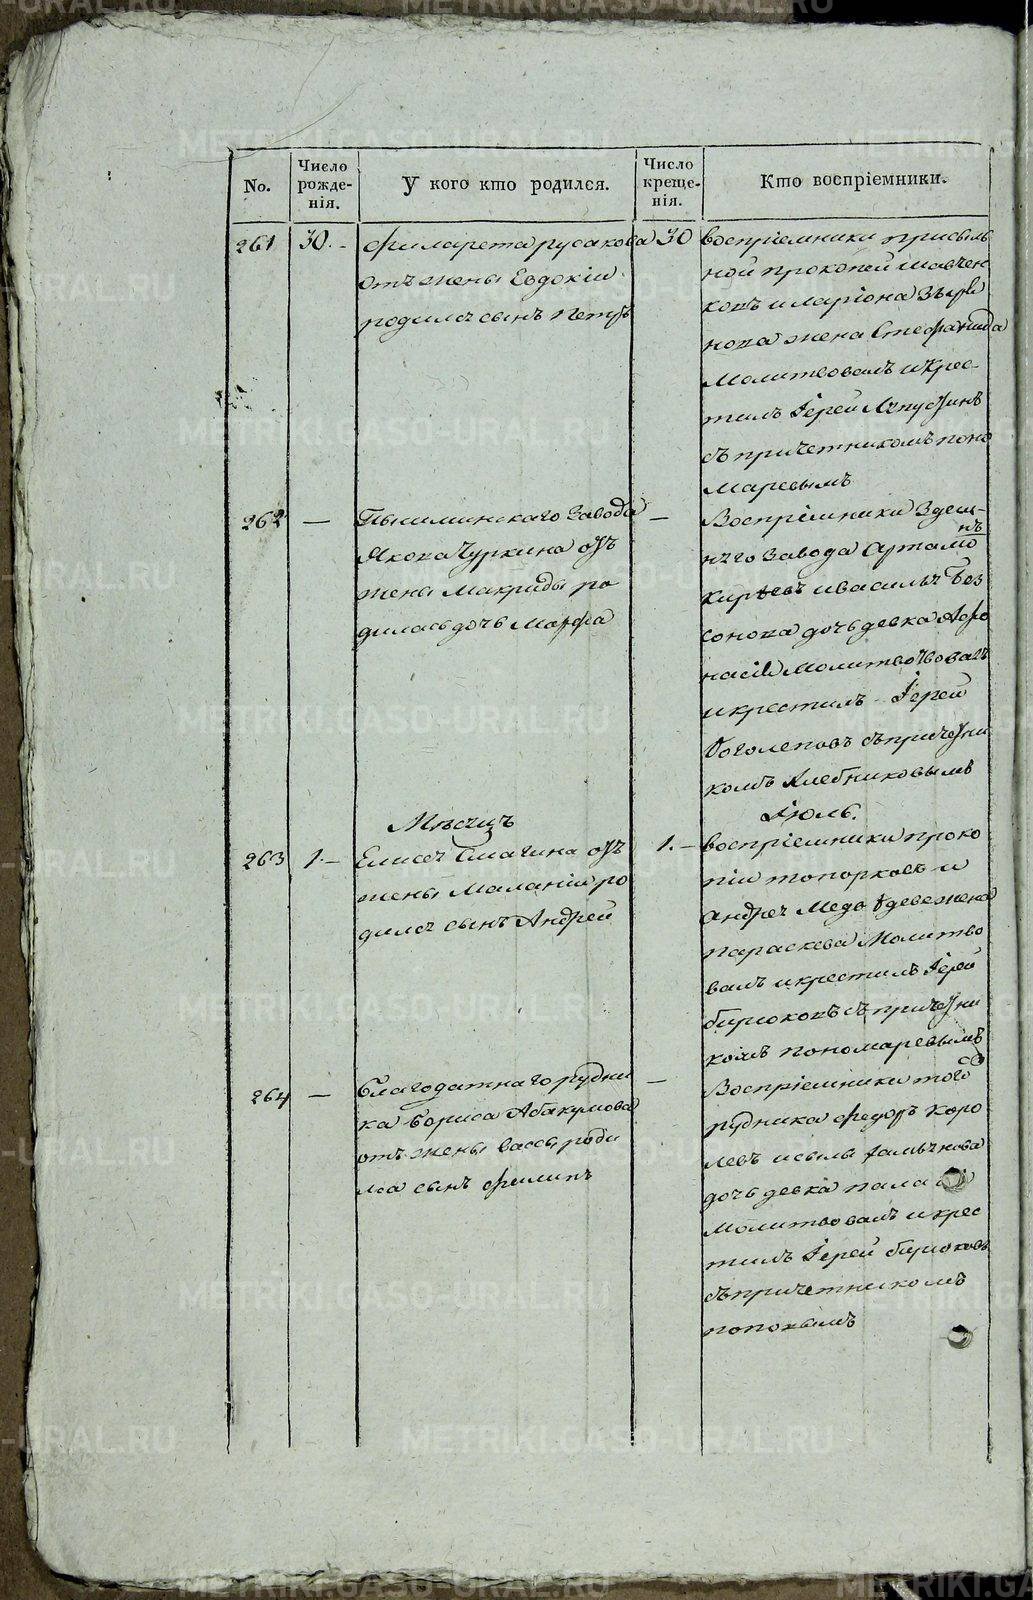 METRIKI.GASO-URAL.RU
No.
Число рожде-нія.
У кого кто родился.
Число креще-нія.
Кто воспріемники.
261
30.-
Филарета русакова
отъ жены Евдокіи
родился сынъ Петръ
30
воспріемники присыль
ной прокопей
ковъ и ларіона
нова жена Стефанида
Молитвовалъ и крес-
тилъ Іерей
съ причетникомъ поно
маревымъ
262
—
Пышминскаго Завода
Якова Чуркина отъ
жены Макриды ро
дилась дочь Марфа
—
Воспріемники Здеш-
няго Завода Артамо
нъ
Киряевъ и василья
сонова дочь девка Афо
насія Молитвовалъ
и крестилъ Іерей
Боголеповъ съ причетни
комъ Хлебниковымъ
Мѣсяцъ
Іюль.
263
1.-
Елисея отъ
жены Маланіи ро
дился сынъ Андрей
1.-
воспріемники проко
пій топорковъ и
Андрея жена
параскева Молитво
валъ и крестилъ Іерей
бирюковъ съ причетни
комъ пономаревымъ
264
—
Благодатнаго рудни
ка Бориса Абакумова
отъ жены вассы роди
лса сынъ филипъ
—
Воспріемники того
рудника федоръ коро
левъ и
дочь девка
молитвовалъ и крес
тилъ Іерей бирюковъ
съ причетникомъ
поповымъ